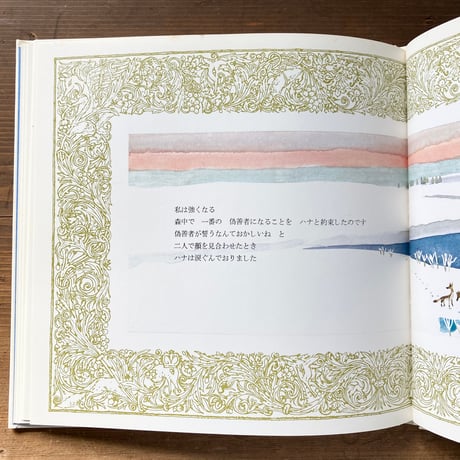 私は強くなる
森中で　一番の　偽善者になることを　ハナと約束したのです
偽善者が誓うなんておかしいね　と
二人で顔を見合わせたとき
ハナは涙ぐんでおりました